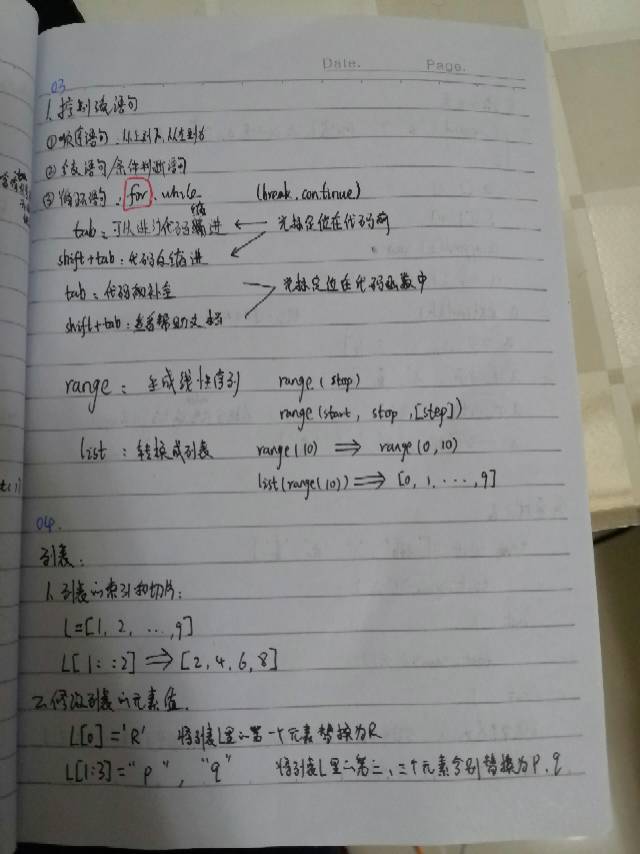 Date. Page.
03
1. 控制流语句
①顺序语句：从上到下，从左到右
②分支语句/条件判断语句
③循环语句：for、while (break、continue)
tab：可以进行代码缩进 ← 光标定位在代码前
shift+tab：代码反缩进
tab：代码初补全 光标定位在代码函数中
shift+tab：查看帮助文档
range：生成线性序列 range(stop)
range(start, stop, [step])
list：转换成列表 range(10) ⇒ range(0,10)
list(range(10)) ⇒ [0, 1, ..., 9]
04.
列表：
1. 列表的索引和切片：
L=[1, 2, ..., 9]
L[1::2] ⇒ [2, 4, 6, 8]
2. 修改列表的元素值.
L[0]='R' 将列表L里的第一个元素替换为R
L[1:3]="p", "q" 将列表L里的第二、三个元素分别替换为P、q